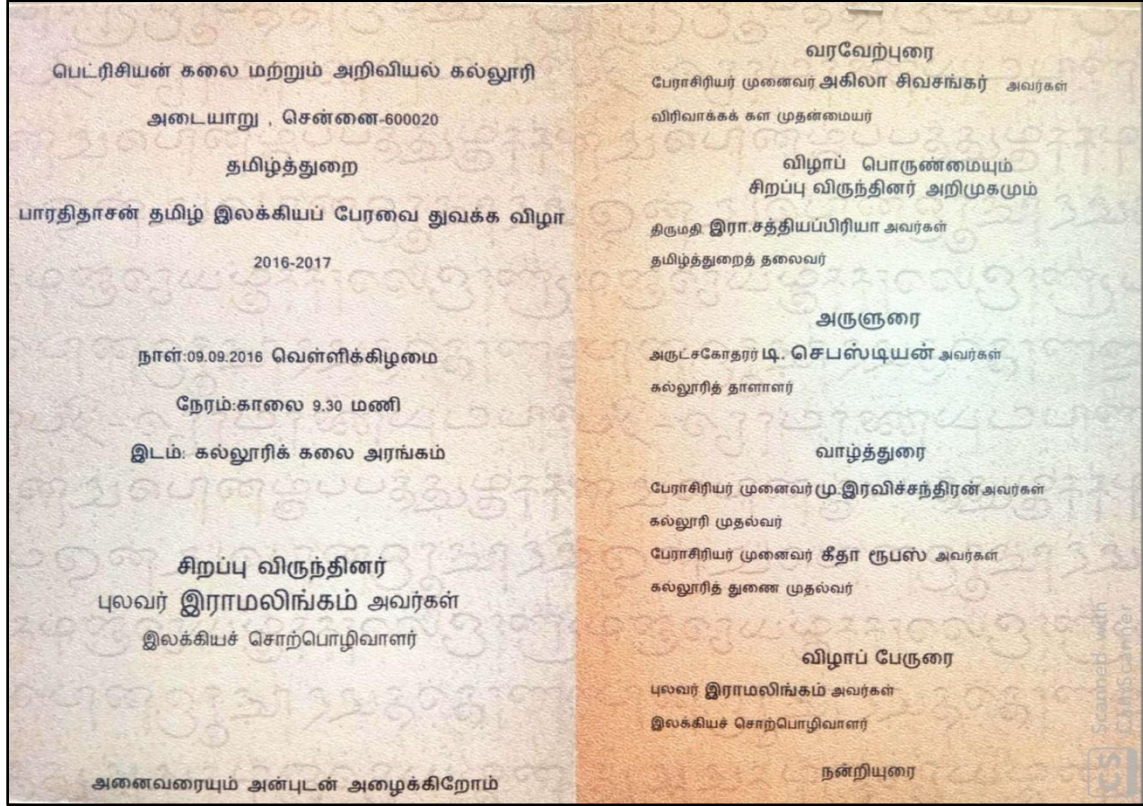 பெட்ரிசியன் கலை மற்றும் அறிவியல் கல்லூரி
அடையாறு , சென்னை-600020
தமிழ்த்துறை
பாரதிதாசன் தமிழ் இலக்கியப் பேரவை துவக்க விழா
2016-2017
நாள்:09.09.2016 வெள்ளிக்கிழமை
நேரம்:காலை 9.30 மணி
இடம்: கல்லூரிக் கலை அரங்கம்
சிறப்பு விருந்தினர்
புலவர் இராமலிங்கம் அவர்கள்
இலக்கியச் சொற்பொழிவாளர்
அனைவரையும் அன்புடன் அழைக்கிறோம்
வரவேற்புரை
பேராசிரியர் முனைவர் அகிலா சிவசங்கர் அவர்கள்
விரிவாக்கக் கள முதன்மையர்
விழாப் பொருண்மையும்
சிறப்பு விருந்தினர் அறிமுகமும்
திருமதி. இரா.சத்தியப்பிரியா அவர்கள்
தமிழ்த்துறைத் தலைவர்
அருளுரை
அருட்சகோதரர் டி. செபஸ்டியன் அவர்கள்
கல்லூரித் தாளாளர்
வாழ்த்துரை
பேராசிரியர் முனைவர் மு.இரவிச்சந்திரன் அவர்கள்
கல்லூரி முதல்வர்
பேராசிரியர் முனைவர் கீதா ரூபஸ் அவர்கள்
கல்லூரித் துணை முதல்வர்
விழாப் பேருரை
புலவர் இராமலிங்கம் அவர்கள்
இலக்கியச் சொற்பொழிவாளர்
நன்றியுரை
CS Scanned with
CamScanner